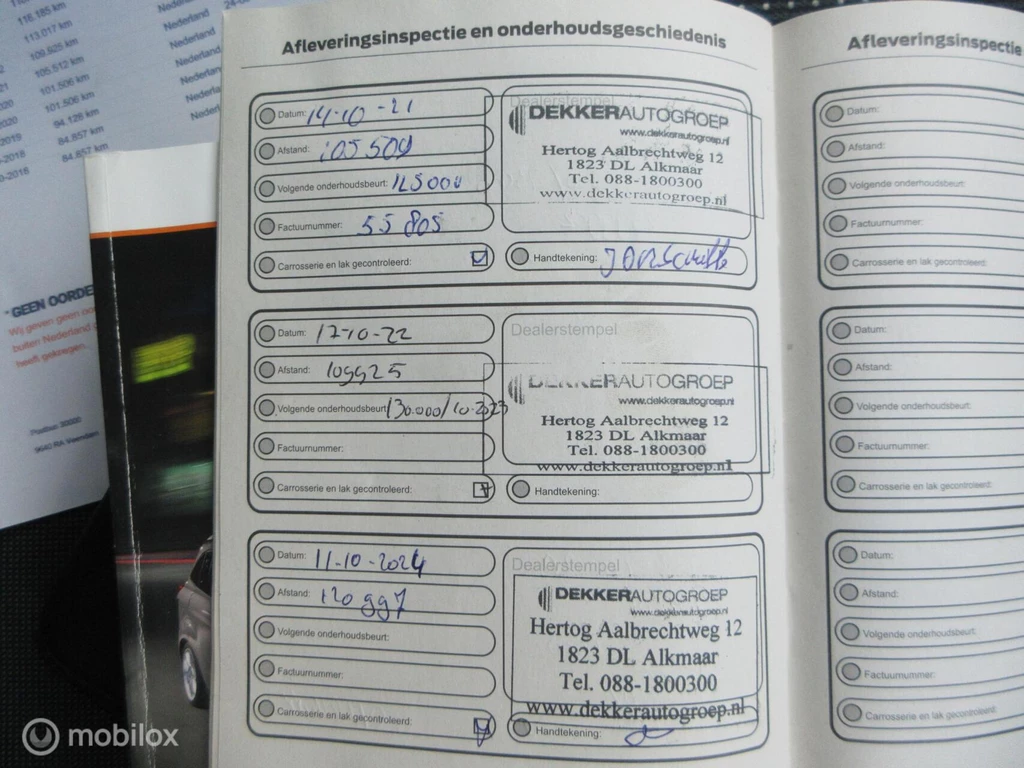 118.185 km
Nederland
113.017 km
Nederland
109.925 km
Nederland
105.512 km
Nederland
101.506 km
Nederland
101.506 km
Nederland
94.128 km
84.857 km
84.857 km
2019
-2018
-2016
* GEEN OORDE
Wij geven geen oor
buiten Nederland
heeft gekregen.
Postbus 30000
9640 RA Veendam
Afleveringsinspectie en onderhoudsgeschiedenis
Datum: 14-10-21
Afstand: 105509
Volgende onderhoudsbeurt: 125000
Factuurnummer: 55805
Carrosserie en lak gecontroleerd:
Dealerstempel
DEKKERAUTOGROEP
www.dekkerautogroep.nl
Hertog Aalbrechtweg 12
1823 DL Alkmaar
Tel. 088-1800300
www.dekkerautogroep.nl
Handtekening:
Datum: 17-10-22
Afstand: 109925
Volgende onderhoudsbeurt: 130.000/10-2023
Factuurnummer:
Carrosserie en lak gecontroleerd:
Dealerstempel
DEKKERAUTOGROEP
www.dekkerautogroep.nl
Hertog Aalbrechtweg 12
1823 DL Alkmaar
Tel. 088-1800300
www.dekkerautogroep.nl
Handtekening:
Datum: 11-10-2024
Afstand: 120997
Volgende onderhoudsbeurt:
Factuurnummer:
Carrosserie en lak gecontroleerd:
Dealerstempel
DEKKERAUTOGROEP
www.dekkerautogroep.nl
Hertog Aalbrechtweg 12
1823 DL Alkmaar
Tel. 088-1800300
www.dekkerautogroep.nl
Handtekening:
Afleveringsinspectie
Datum:
Afstand:
Volgende onderhoudsbeurt:
Factuurnummer:
Carrosserie en lak gecontroleerd:
Datum:
Afstand:
Volgende onderhoudsbeurt:
Factuurnummer:
Carrosserie en lak gecontroleerd:
Datum:
Afstand:
Volgende onderhoudsbeurt:
Factuurnummer:
Carrosserie en lak gecontroleerd:
mobilox